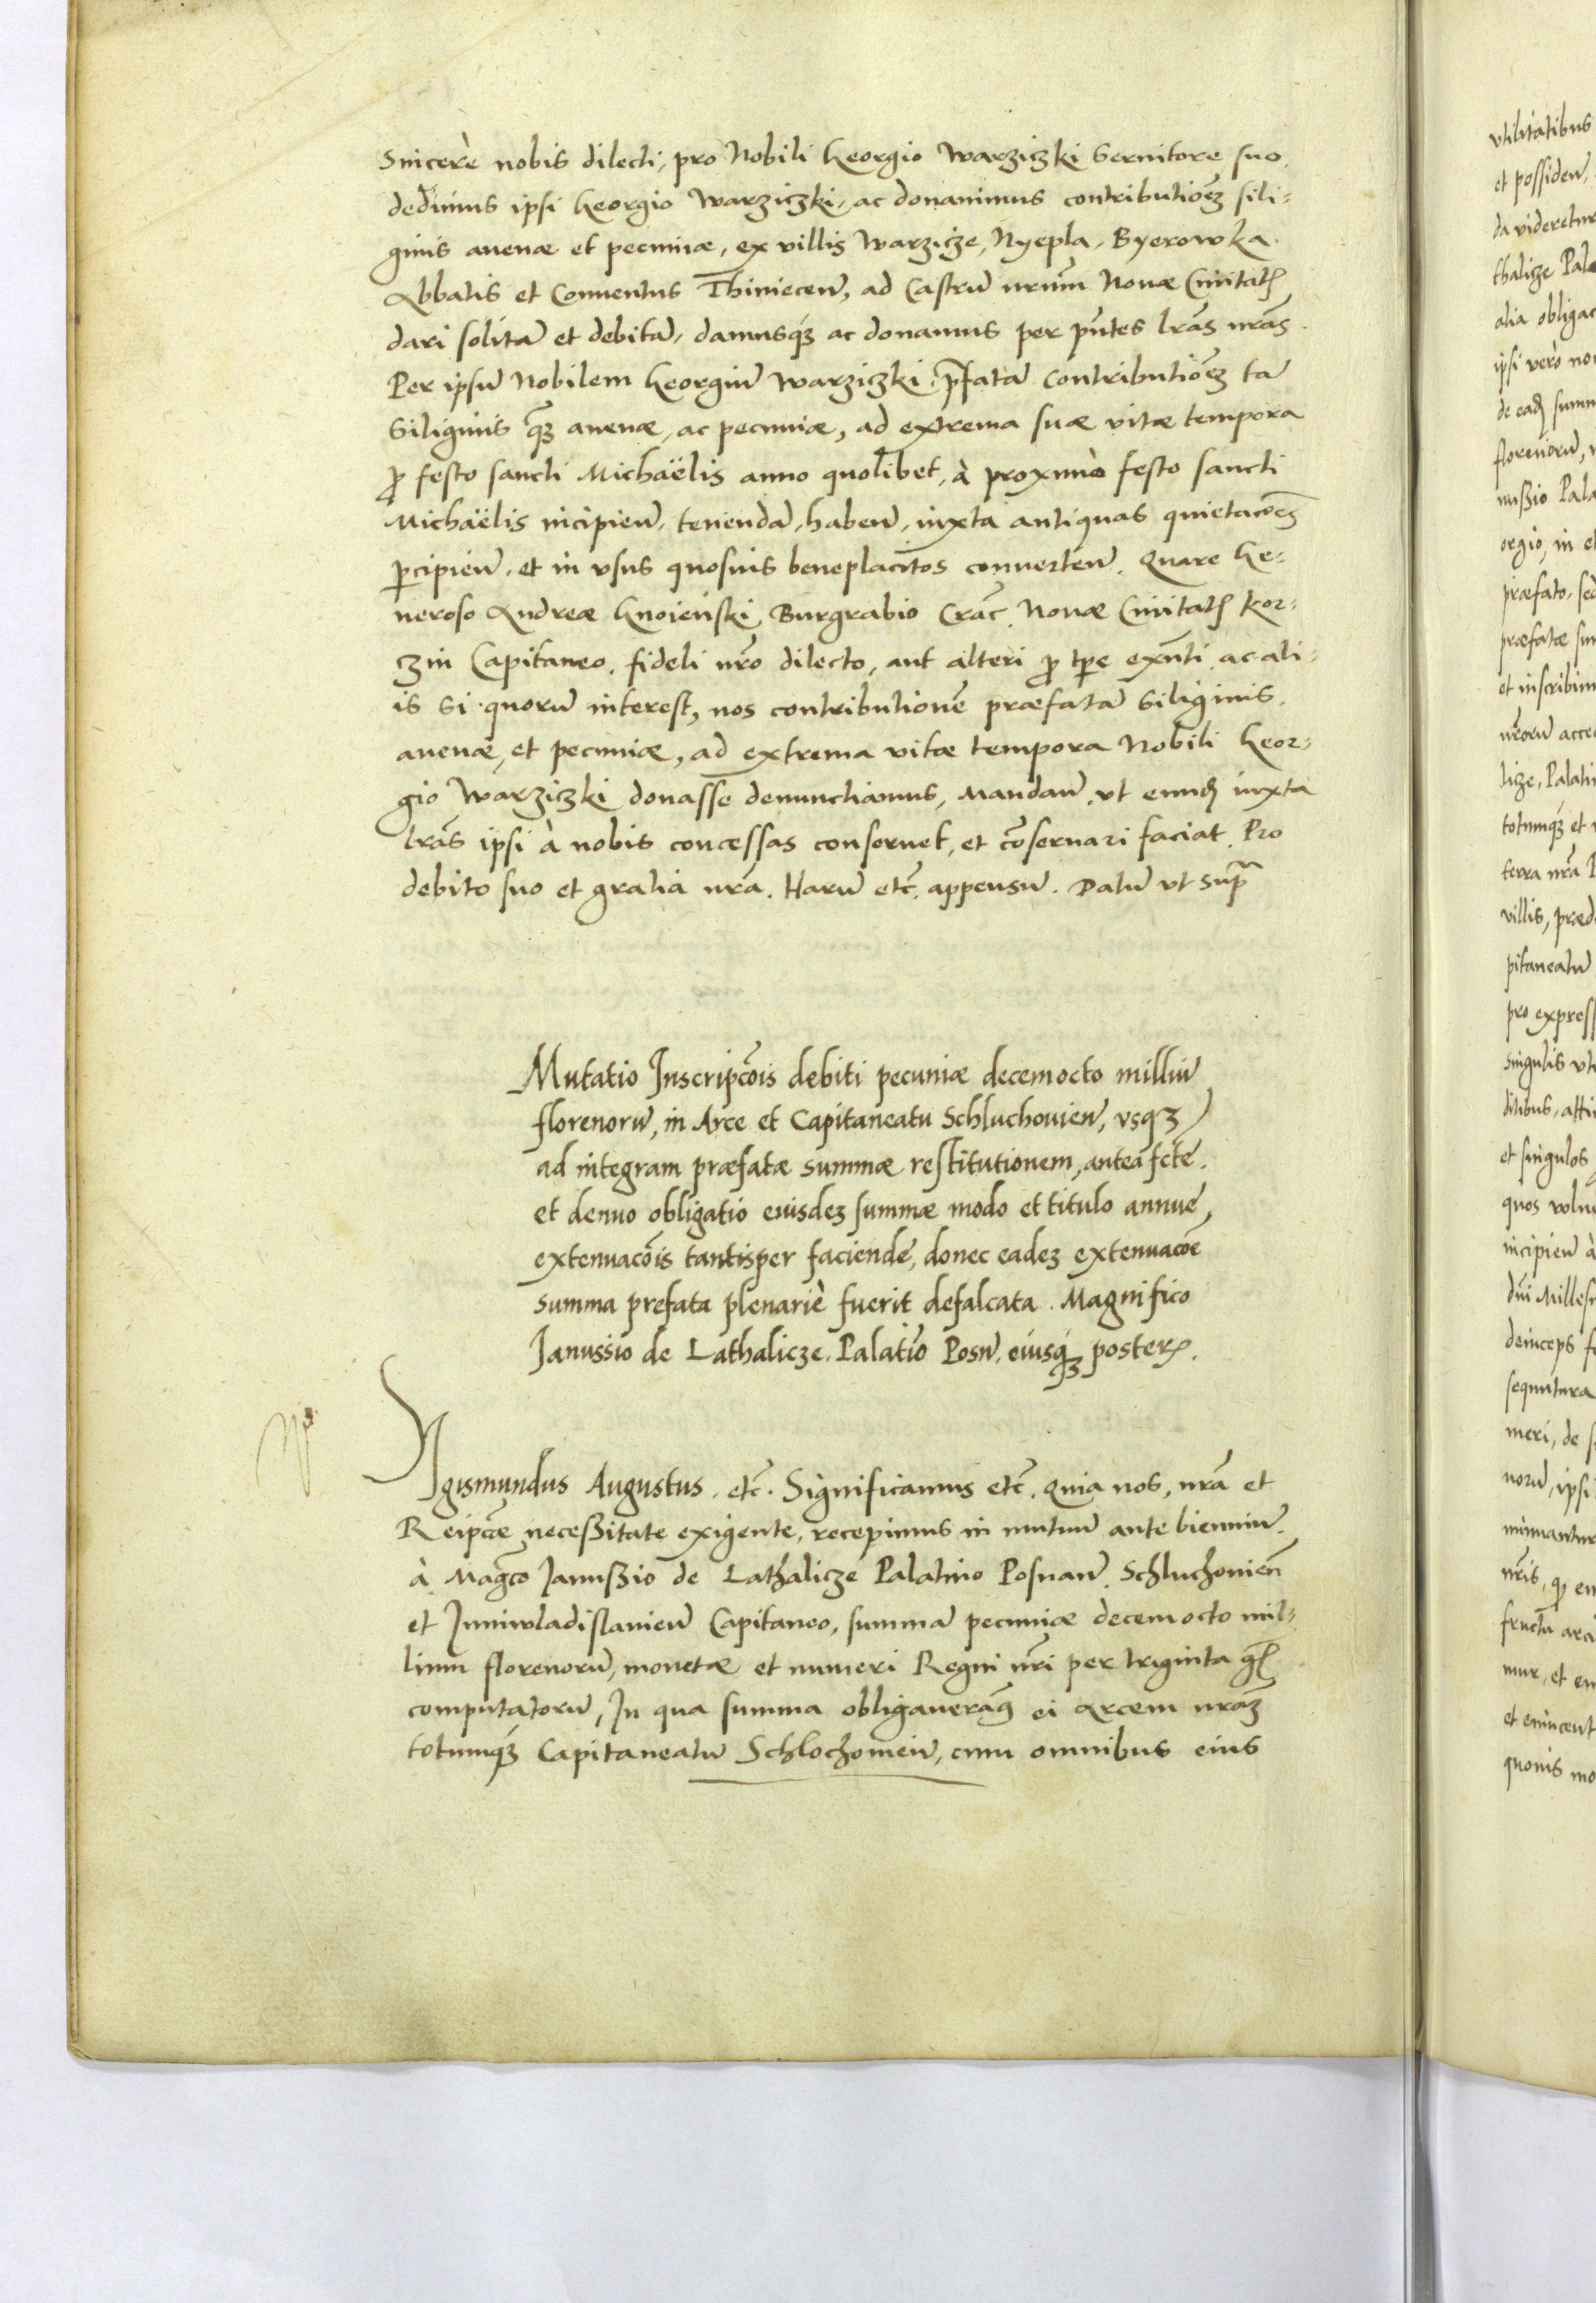 Sincerè nobis dilecti, pro Nobili Georgio Warziczki Seruitore suo,
dedimus ipsi Georgio Warziczki, ac donauimus contributioēʒ sili-
ginis auenæ et pecuniæ, ex villis Warzicze, Nyepla, Byerowka.
Abbatis et Conuentus Thiniecen̄, ad Castrū nrūm Nouæ Ciuitatꝭ
dari solitā et debitā, damusqꝫ ac donamus per pn̄tes lrās nrās.
Per ipsū Nobilem Georgiū Warziczki, p̄fatā Contributioēʒ tā
Siliginis qꝫ auenæ, ac pecuniæ, ad extrema suæ vitæ tempora
ꝓ festo sancti Michaëlis anno quolibet, à proximò festo sancti
Michaëlis incipien̄, tenendā, haben̄, iuxta antiquas quietacōēs
ꝑcipien̄, et in vsus quosuis beneplacitos conuerten̄. Quare Ge-
neroso Andreæ Gnoieński Burgrabio Crāc. Nouæ Ciuitatꝭ Kor-
czin Capitaneo, fideli nrō dilecto, aut alteri ꝓ tꝑe exn̄ti, ac ali-
is si quorū interest, nos contributionē præfatā Siliginis,
auenæ, et pecuniæ, ad extrema vitæ tempora Nobili Geor-
gio Warziczki donasse denunctiamus, Mandan̄, vt eundꝭ iuxta
lrās ipsi à nobis concessas conseruet, et cōseruari faciat. Pro
debito suo et gratia nrā. Harū etc̄. appensū. Datū vt Supr̄a
Mutatio Inscripcōis debiti pecuniæ decemocto milliū
florenorū, in Arce et Capitaneatu Schluchouien̄, vsqꝫ
ad integram præfatæ summæ restitutionem, anteà fctē.
et denuo obligatio eiusdeʒ summæ modo et titulo annuę,
extenuacōis tantisper faciendę, donec eadeʒ extenuacōe
summa prefata plenariè fuerit defalcata. Magnifico
Janussio de Lathalicze. Palatīo Posn̄. eiusqꝫ posterꝭ.
Sigismundus Augustus. etc̄. Significamus etc̄. Quia nos, nrā et
Reipcǣ necessitate exigente, recepimus in mutuū ante bienniū,
à Magc̄o Janussio de Lathalicze Palatino Posnan̄. Schluchouien̄
et Juniwladislauien̄ Capitaneo, summā pecuniæ decemocto mil-
lium florenorū, monetæ et numeri Regni nrī per triginta gꝭ
computatorū, In qua summa obligaueramꝰ ei Arcem nrāʒ
totumqꝫ Capitaneatū Schlochouien̄, cum omnibus eius
vtilitatibus
et possiden̄,
da videretur
thalicze Pala
alia obligac
ipsi verò no
de eadꝭ summ
florenorū,
nussio Pala
orgio, in e
præfato, sed
præfatæ su
et inscribim
nrōrū acce
licze, Palati
totumqꝫ et
terra nrā
villis, præd
pitaneatū
pro express
singulis vt
ditibus, atti
et singulos
quos volu
incipien̄ à
dn̄i Milles
deinceps f
sequutura
meri, de
norū, ipsi
minuantur
nrīs, qꝫ en
fructu arc
mur, et en
et emiucent
quouis mo